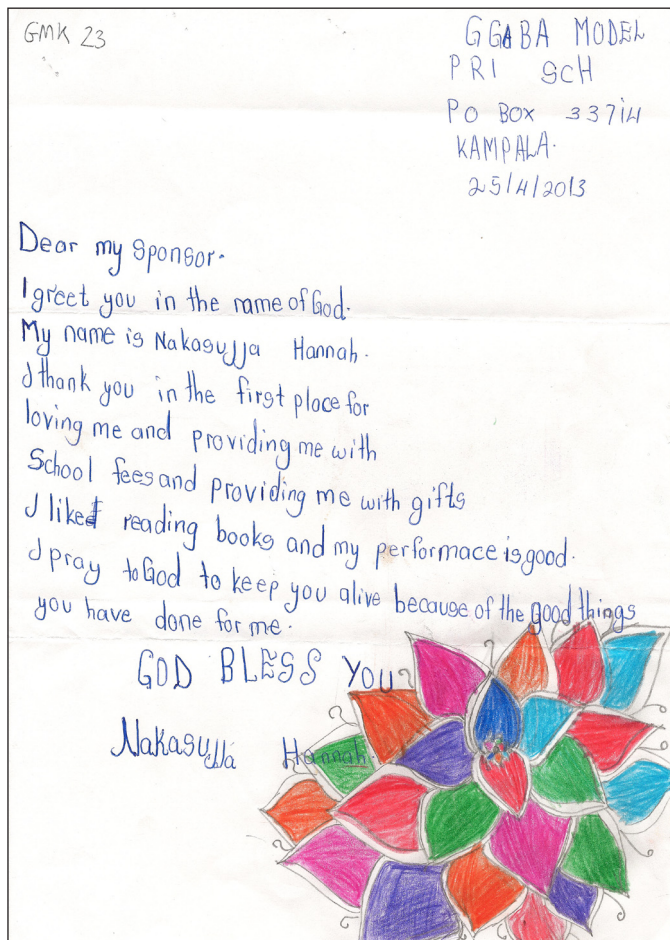 GMK 23
GGABA MODEL
PRI SCH
PO BOX 33714
KAMPALA.
25/4/2013
Dear my Sponsor.
I greet you in the name of God.
My name is Nakasujja Hannah.
I thank you in the first place for
loving me and providing me with
School fees and providing me with gifts
I liked reading books and my performace is good.
I pray to God to keep you alive because of the good things
you have done for me.
GOD BLESS YOU
Nakasujja Hannah.